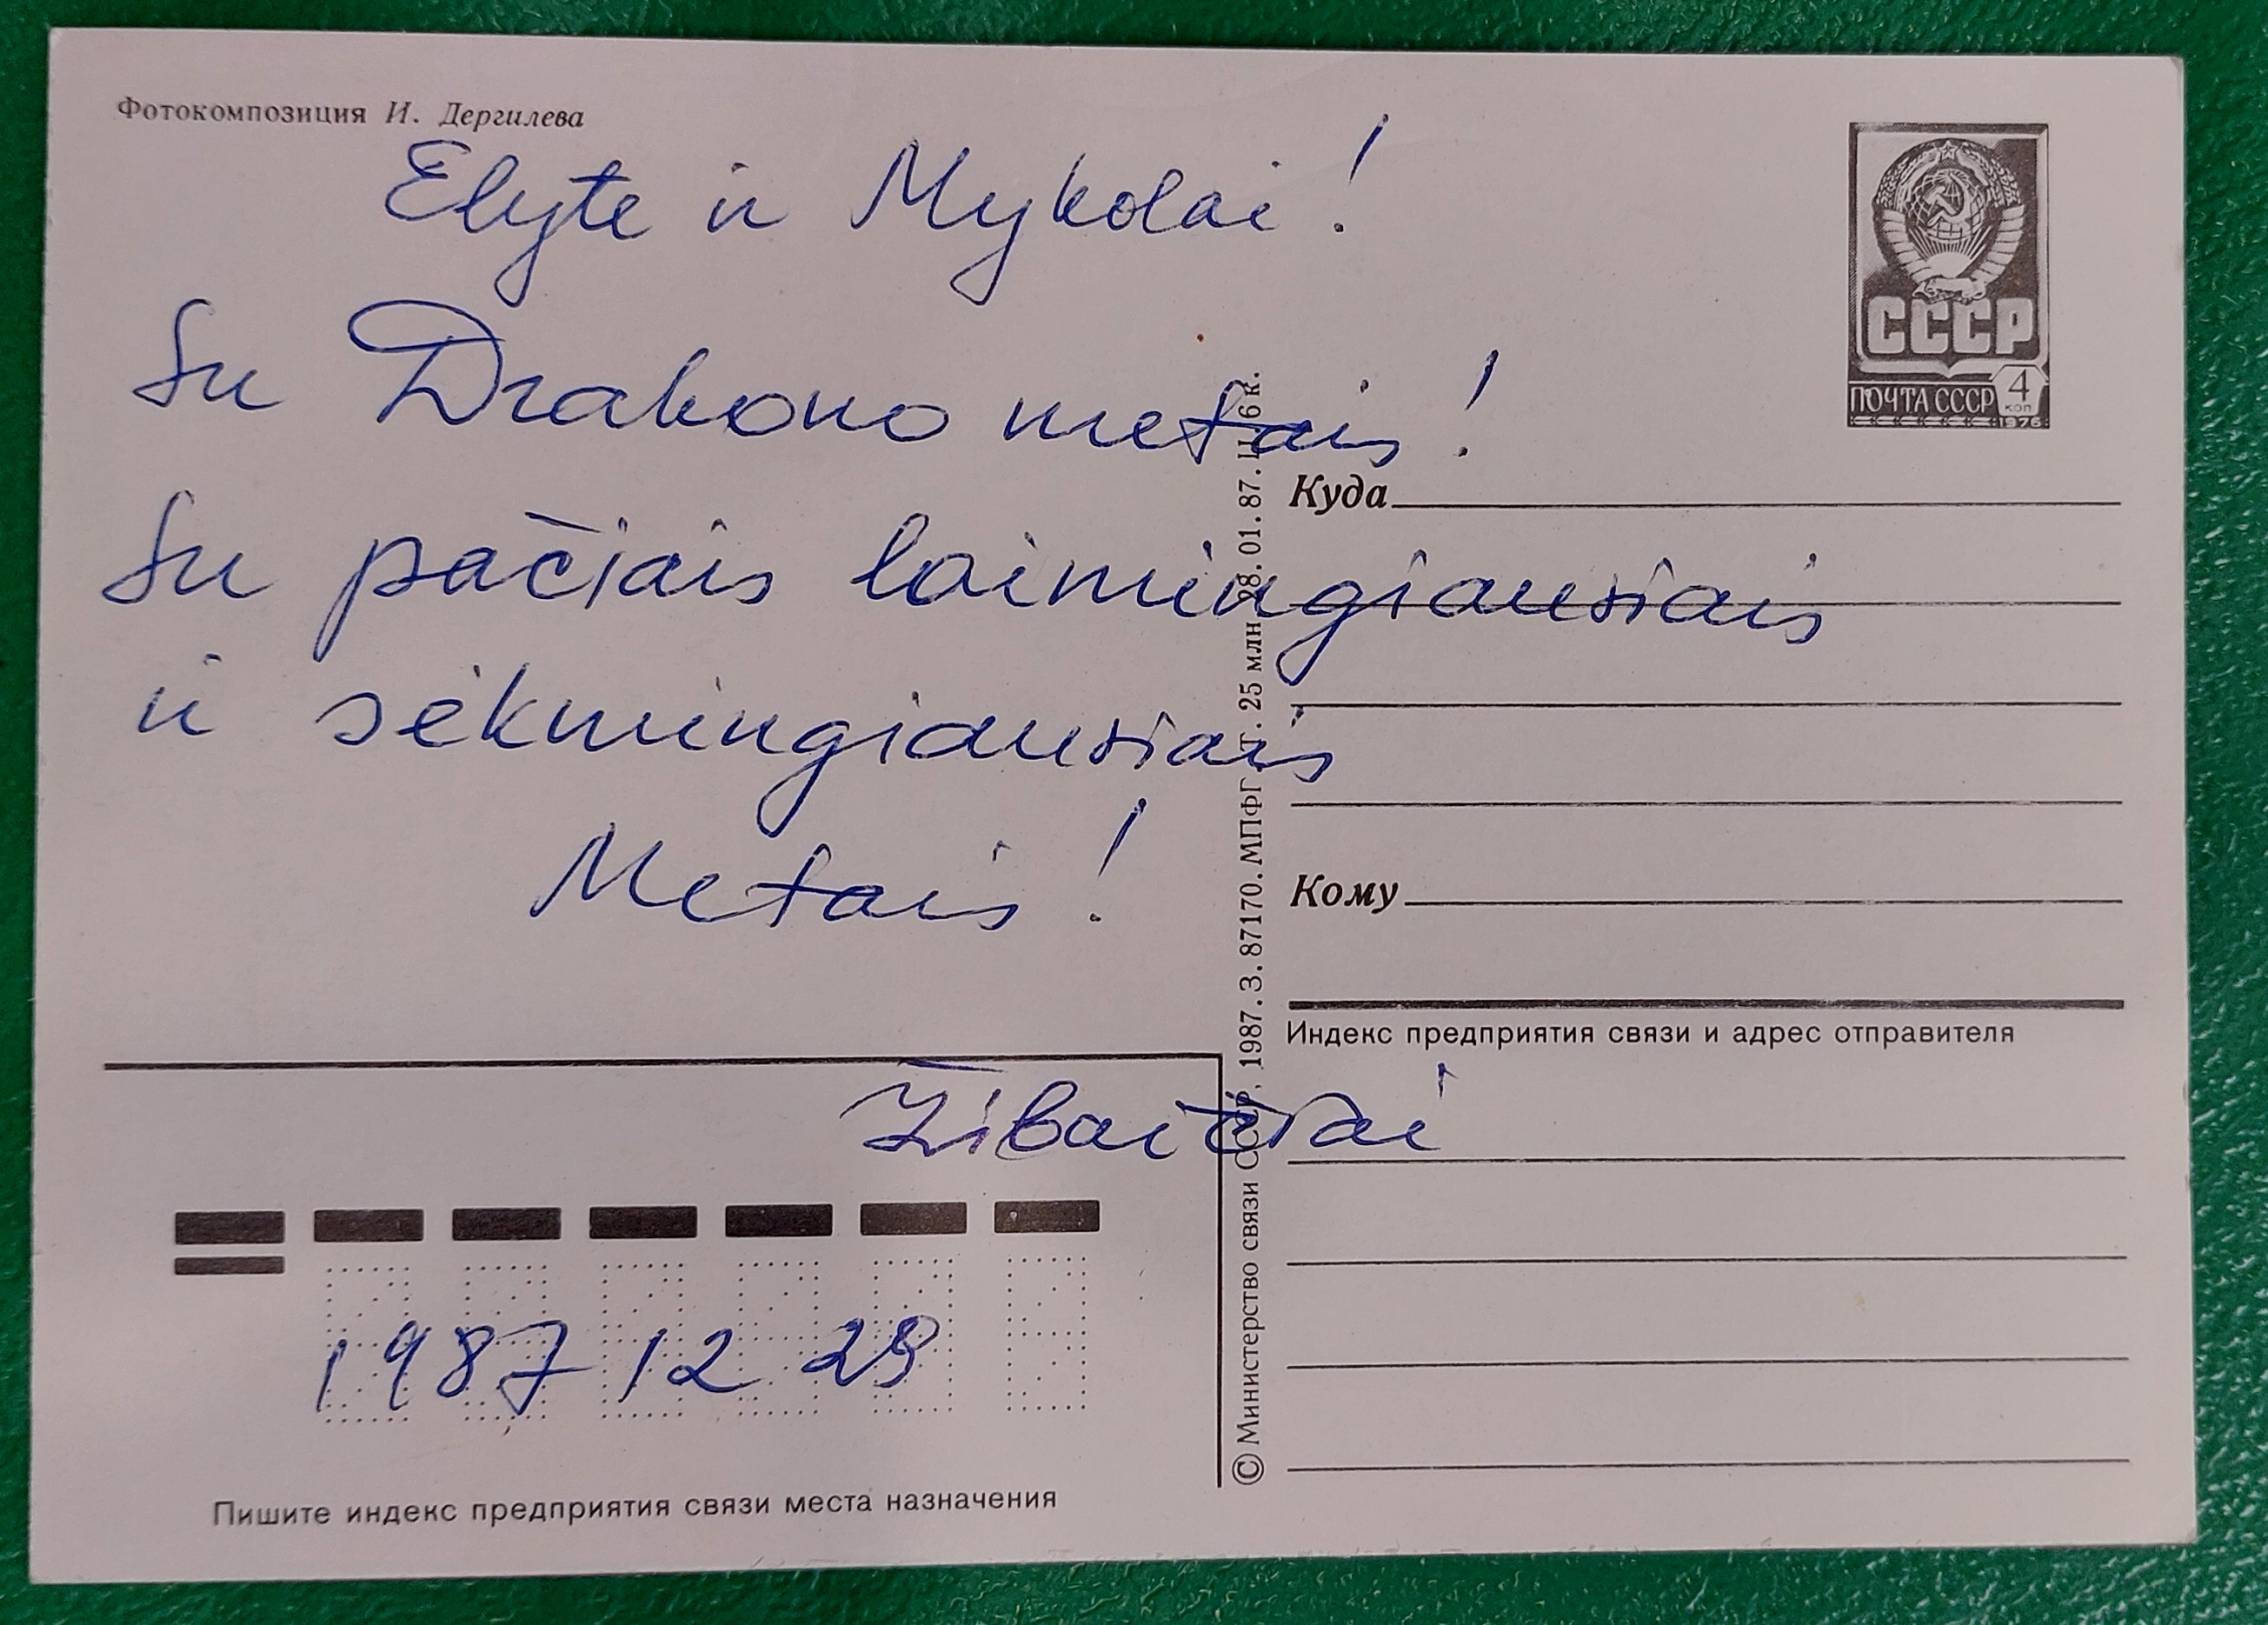 Фотокомпозиция И. Дергилева
Elyte ir Mykolai!
Su Drakono metais!
Su pačiais laimingiausiais
ir sėkmingiausiais
Metais!
Žibaičiai
1987 12 29
Пишите индекс предприятия связи места назначения
© Министерство связи СССР, 1987. З. 87170. МПФГ. Т. 25 млн 28. 01. 87. Ц. 6 к.
СССР
ПОЧТА СССР
4
коп
1976
Куда
Кому
Индекс предприятия связи и адрес отправителя